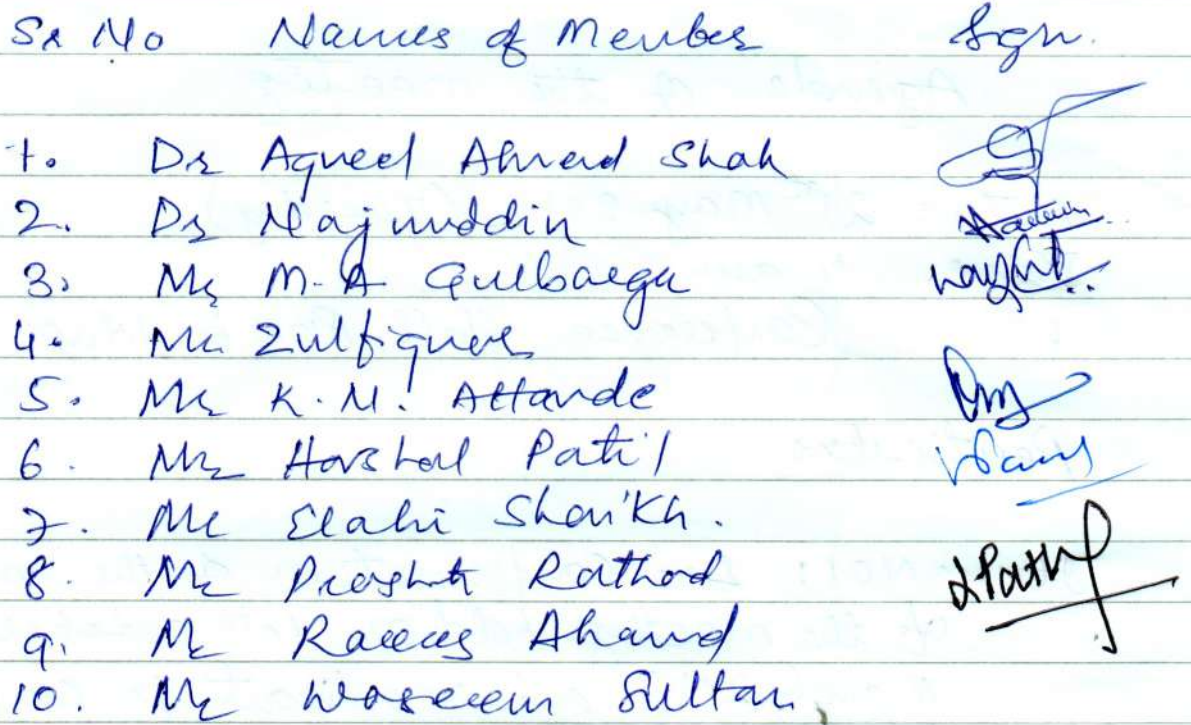 Sr No Names of Member Sgn.
1. Dr Aqueel Ahmed Shah
2. Dr Najmuddin
3. Mr M. A Gulbarga
4. Mr Zulfiquar
5. Mr K. N. Attarde
6. Mr Harshal Patil
7. Mr Elahi Shaikh.
8. Mr Prashant Rathod
9. Mr Raees Ahamd
10. Mr Waseem Sultan